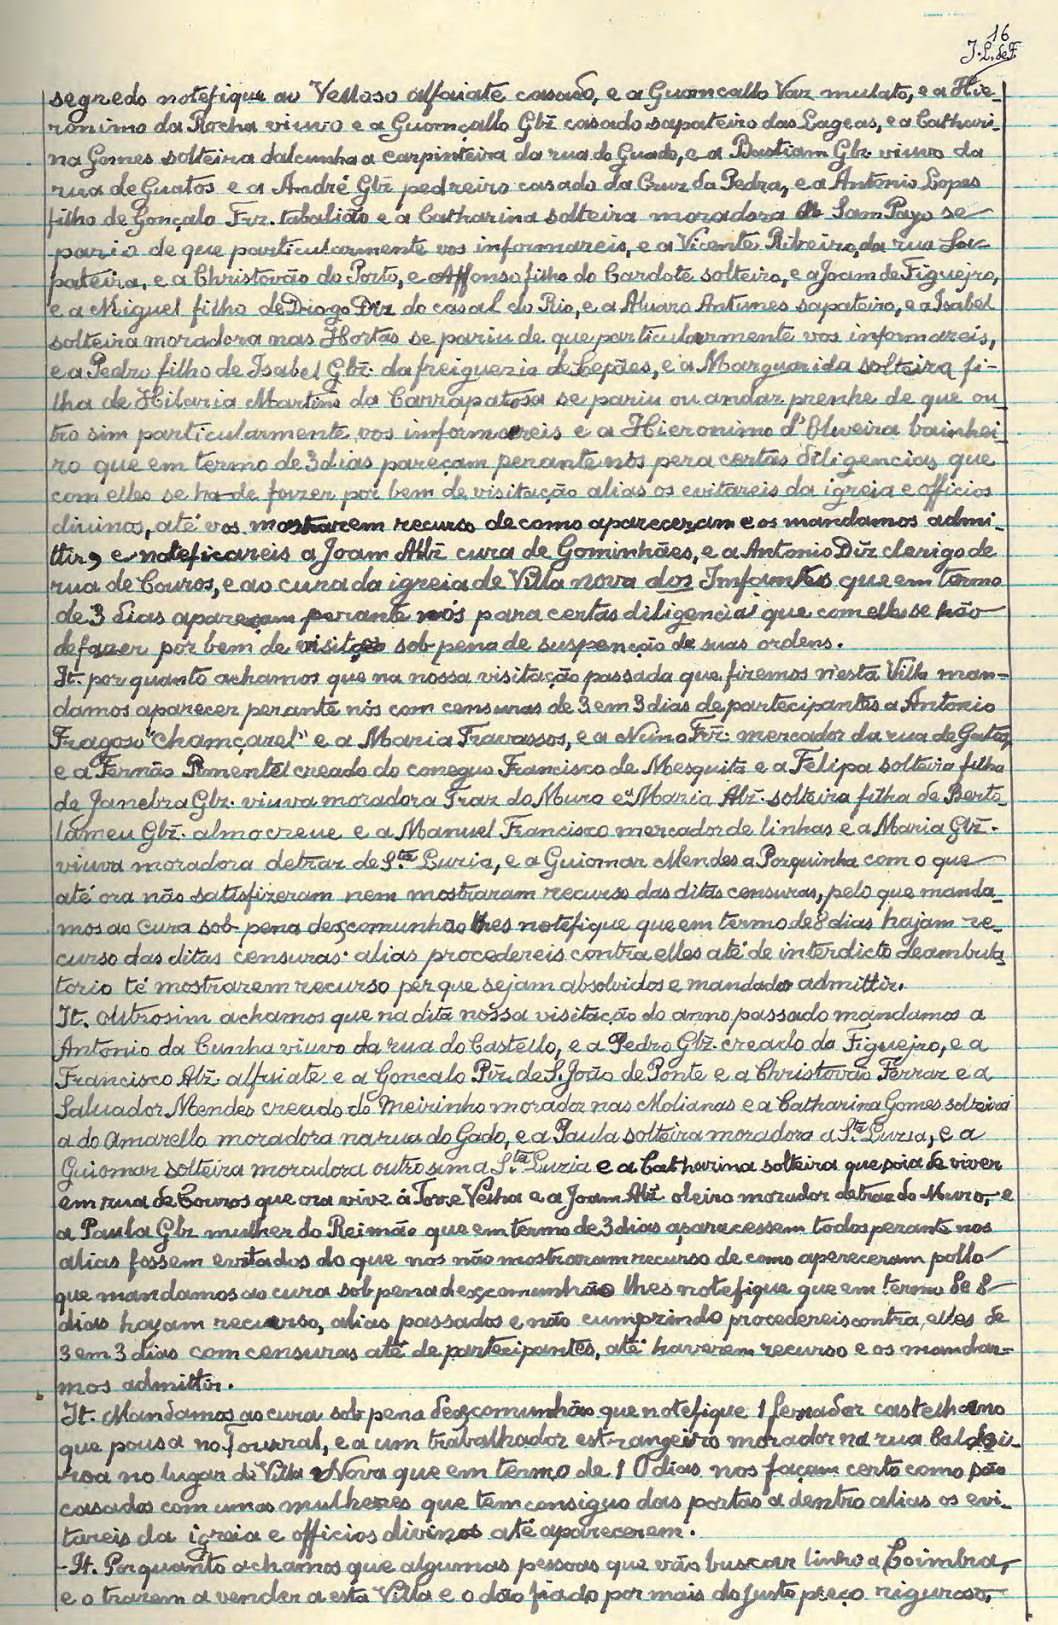 16
J. L. de F.
segredo notefique ao Velloso alfaiate casado, e a Guomcallo Vaz mulato, e a Hie-
ronimo da Rocha viuvo e a Guomçallo Glz casado sapateiro das Lageas, e a Cathari-
na Gomes solteira dalcunha a carpinteira da rua do Guado, e a Bastiam Glz. viuvo da
rua de Guatos e a André Glz pedreiro casado da Cruz da Pedra, e a Antonio Lopes
filho de Gonçalo Frz. tabalião e a Catharina solteira moradora a Sam Payo se
pario de que particularmente vos informareis, e a Vicente Ribeiro, da rua Sa-
pateira, e a Christovão do Porto, e Affonso filho do Cardote solteiro, e a Joam de Figuejro,
e a Miguel filho de Diogo Diz do casal do Rio, e a Alvaro Antunes sapateiro, e a Isabel
solteira moradora nas Hortas se pariu de que particularmente vos informareis,
e a Pedro filho de Isabel Glz. da freiguezia de Cepães, e a Marguarida solteira fi-
lha de Hilaria Martins da Carrapatosa se pariu ou andar prenhe de que ou-
tro sim particularmente vos informareis e a Hieronimo d'Oliveira bainhei-
ro que em termo de 3 dias pareçam perante nós pera certas diligencias que
com elles se ha de fazer por bem de visitação alias os evitareis da igreia e officios
divinos, até vos mostrarem recurso de como apareceram e os mandamos admi-
ttir, e noteficareis a Joam Alz cura de Gominhães, e a Antonio Diz clerigo de
rua de Couros, e ao cura da igreia de Villa nova dos Imfantes que em termo
de 3 dias apareçam perante nós para certas diligencias que com elles se hão
de fazer por bem de visitção sob pena de suspenção de suas ordens.
It. por quanto achamos que na nossa visitação passada que fizemos n'esta Villa man-
damos aparecer perante nós com censuras de 3 em 3 dias de partecipantes a Antonio
Fragoso "chamçarel" e a Maria Travassos, e a Nuno Frz. mercador da rua de Gatos,
e a Fernão Pimentel creado do coneguo Francisco de Mesquita e a Felipa solteira filha
de Janebra Glz. viuva moradora Traz do Muro e a Maria Alz. solteira filha de Berto-
lameu Glz. almocreue e a Manuel Francisco mercador de linhas e a Maria Glz.
viuva moradora detraz de S.ta Luzia, e a Guiomar Mendes a Porquinha com o que
até ora não satisfizeram nem mostraram recurso das ditas censuras, pelo que manda-
mos ao cura sob pena dexcomunhão lhes notefique que em termo de 8 dias hajam re-
curso das ditas censuras: alias procedereis contra elles até de interdicto deambula-
torio té mostrarem recurso pér que sejam absolvidos e mandados admittir.
It. outrosim achamos que na dita nossa visitação do anno passado mandamos a
Antonio da Cunha viuvo da rua do Castello, e a Pedro Glz. creado do Figuejro, e a
Francisco Alz. alfaiate e a Goncalo Piz. de S. João de Ponte e a Christovão Ferraz e a
Saluador Mendes creado do meirinho morador nas Molianas e a Catharina Gomes solteira
a do Amarello moradora na rua do Gado, e a Paula solteira moradora a S.ta Luzia, e a
Guiomar solteira moradora outrosim a S.ta Luzia e a Catharina solteira que soia de viver
em rua de Couros que ora vive á Torre Velha e a Joam Alz oleiro morador detraz do Muro, e
a Paula Glz mulher do Reimão que em termo de 3 dias aparecessem todos perante nos
alias fossem evitados do que nos não mostraram recurso de como apereceram pollo
que mandamos ao cura sob pena dexcomunhão lhes notefique que em termo de 8
dias hajam recurso, alias passados e não cumprindo procedereis contra elles de
3 em 3 dias com censuras até de partecipantes, até haverem recurso e os mandar-
mos admittir.
It. Mandamos ao cura sob pena dexcomunhão que notefique 1 ferrador castelhano
que pousa no Tourral, e a um trabalhador estrangeiro morador na rua Caldei-
roa no lugar de Villa Nova que em termo de 10 dias nos façam certo como são
casados com umas mulheres que tem consiguo das portas a dentro alias os evi-
tareis da igreia e officios divinos até aparecerem.
- It. Porquanto achamos que algumas pessoas que vão buscar linho a Coimbra,
e o trazem a vender a esta Villa e o dão fiado por mais do justo preço riguroso,